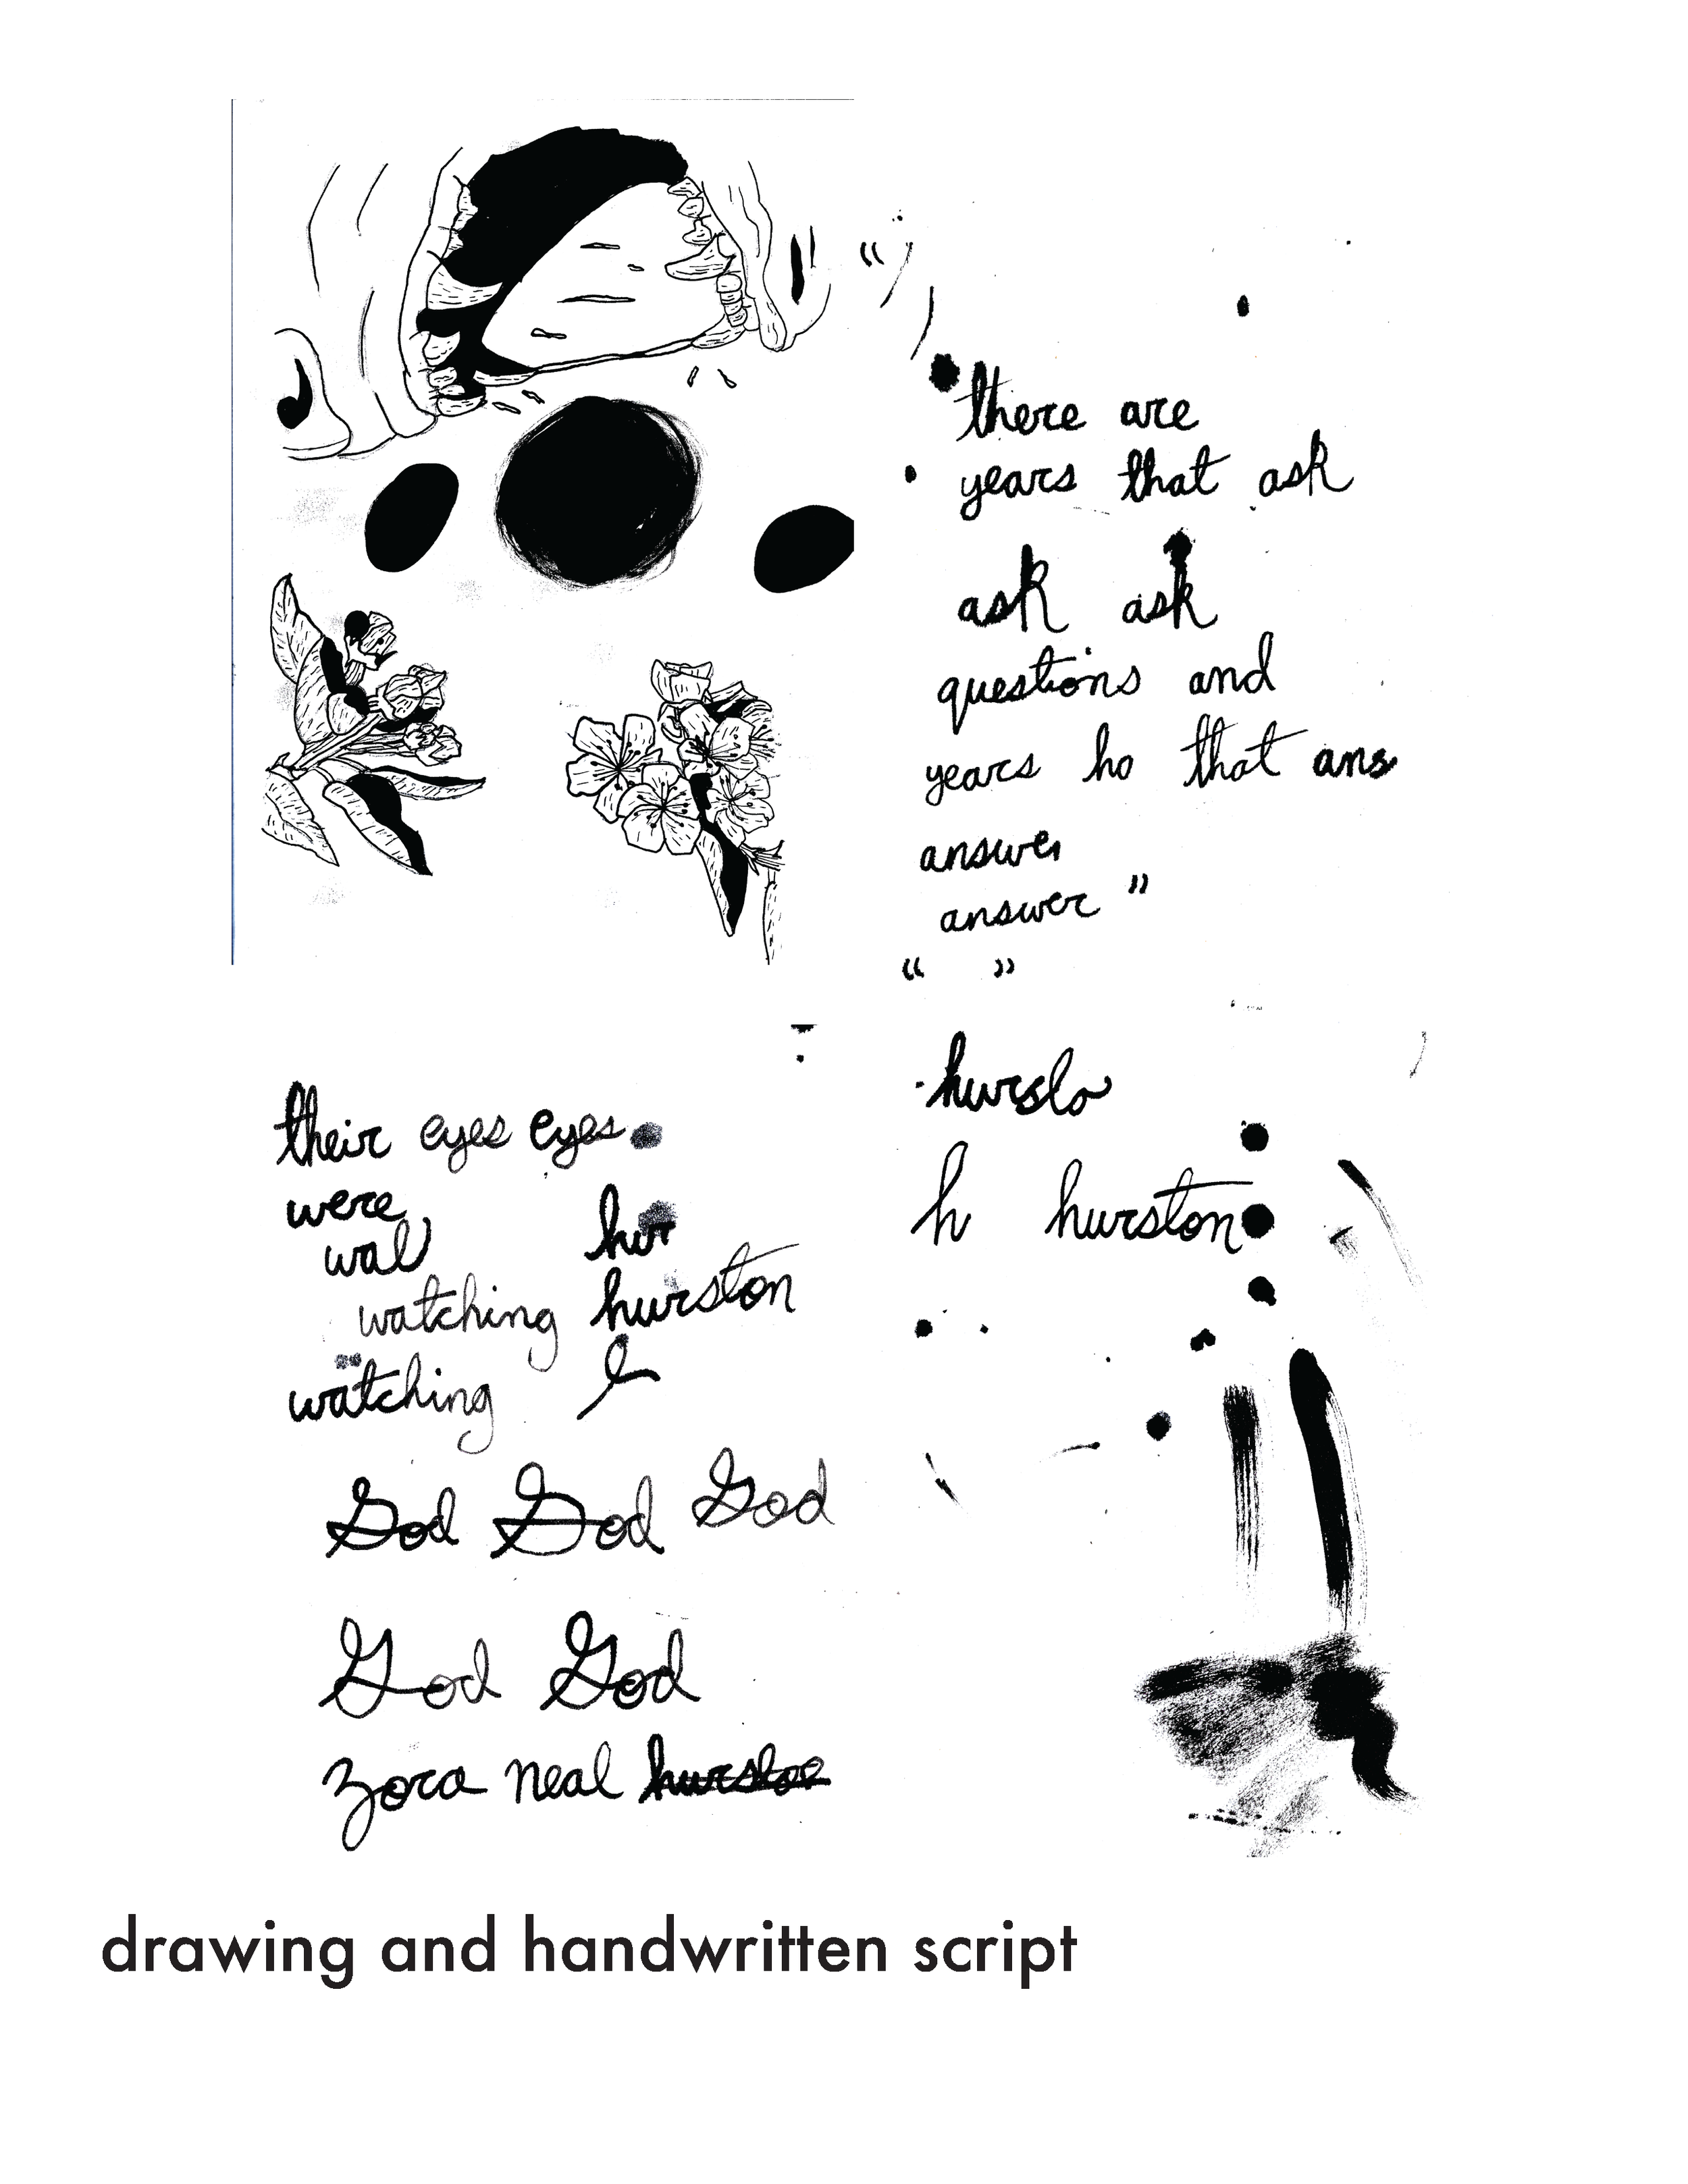 “
there are
years that ask
ask ask
questions and
years ho that ans
answer
answer ”
“ ”
hursto
h hurston
their eyes eyes
were
wal hur
watching hurston
watching
God God God
God God
zora neal
drawing and handwritten script